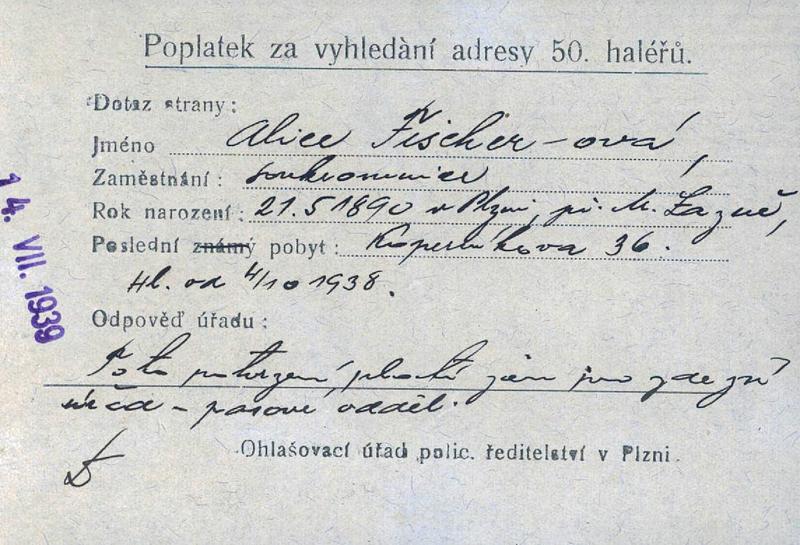 Poplatek za vyhledání adresy 50. haléřů.
Dotaz strany:
Jméno Alice Fischer-ová,
Zaměstnání: soukromnice
Rok narození: 21.5 1890 v Plzni, př. M. Lázně,
Poslední známý pobyt: Koperníkova 36.
Hl. od 4/10 1938.
Odpověď úřadu:
Toto potvrzení platí jen pro zdejší
úřad - pasové odděl.
Ohlašovací úřad polic. ředitelství v Plzni.
14. VII. 1939